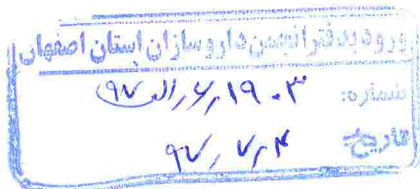 ورود بدفتر انجمن داروسازان استان اصفهان
شماره: ۱۹۰۳/۶/الف/۹۷
تاریخ: ۹۷/۷/۴